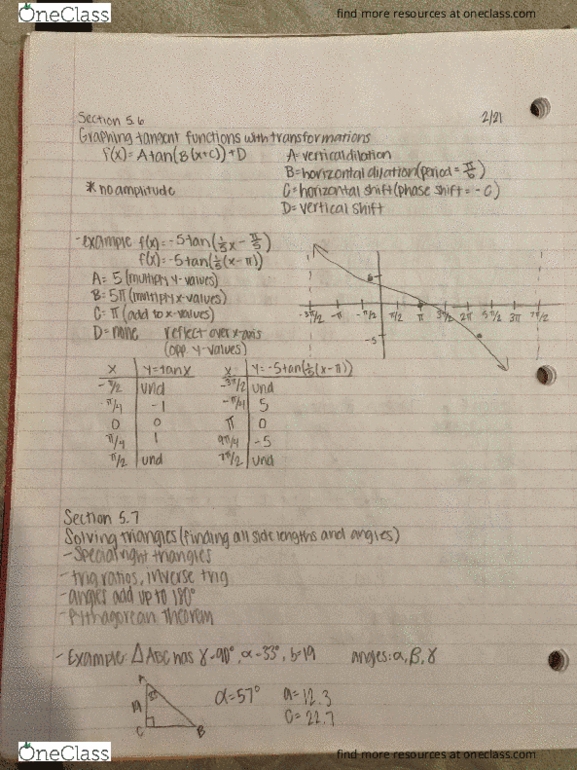 OneClass
find more resources at oneclass.com
Section 5.6
2/21
Graphing tangent functions with transformations
f(x)= A tan(B(x+c))+D
A= vertical dilation
B= horizontal dilation (period = π/B)
* no amplitude
C= horizontal shift (phase shift = -C)
D= vertical shift
-example f(x)= -5tan(1/5x - π/5)
f(x)= -5tan(1/5(x-π))
A= 5 (multiply y-values)
B= 5π (multiply x-values)
C= π (add to x-values)
D= none reflect over x-axis
(opp. y-values)
-3π/2 -π -π/2 π/2 π 3π/2 2π 5π/2 3π 7π/2
-5
x y=tanx x y=-5tan(1/5(x-π))
-π/2 und -3π/2 und
-π/4 -1 -π/4 5
0 0 π 0
π/4 1 9π/4 -5
π/2 und 7π/2 und
Section 5.7
Solving triangles (finding all side lengths and angles)
-Special right triangles
-trig ratios, inverse trig
-angles add up to 180°
-Pythagorean Theorem
-Example: △ABC has γ=90°, α=33°, b=19 angles: α, β, γ
A
C B
α=57° a=12.3
c=22.7
OneClass
find more resources at oneclass.com